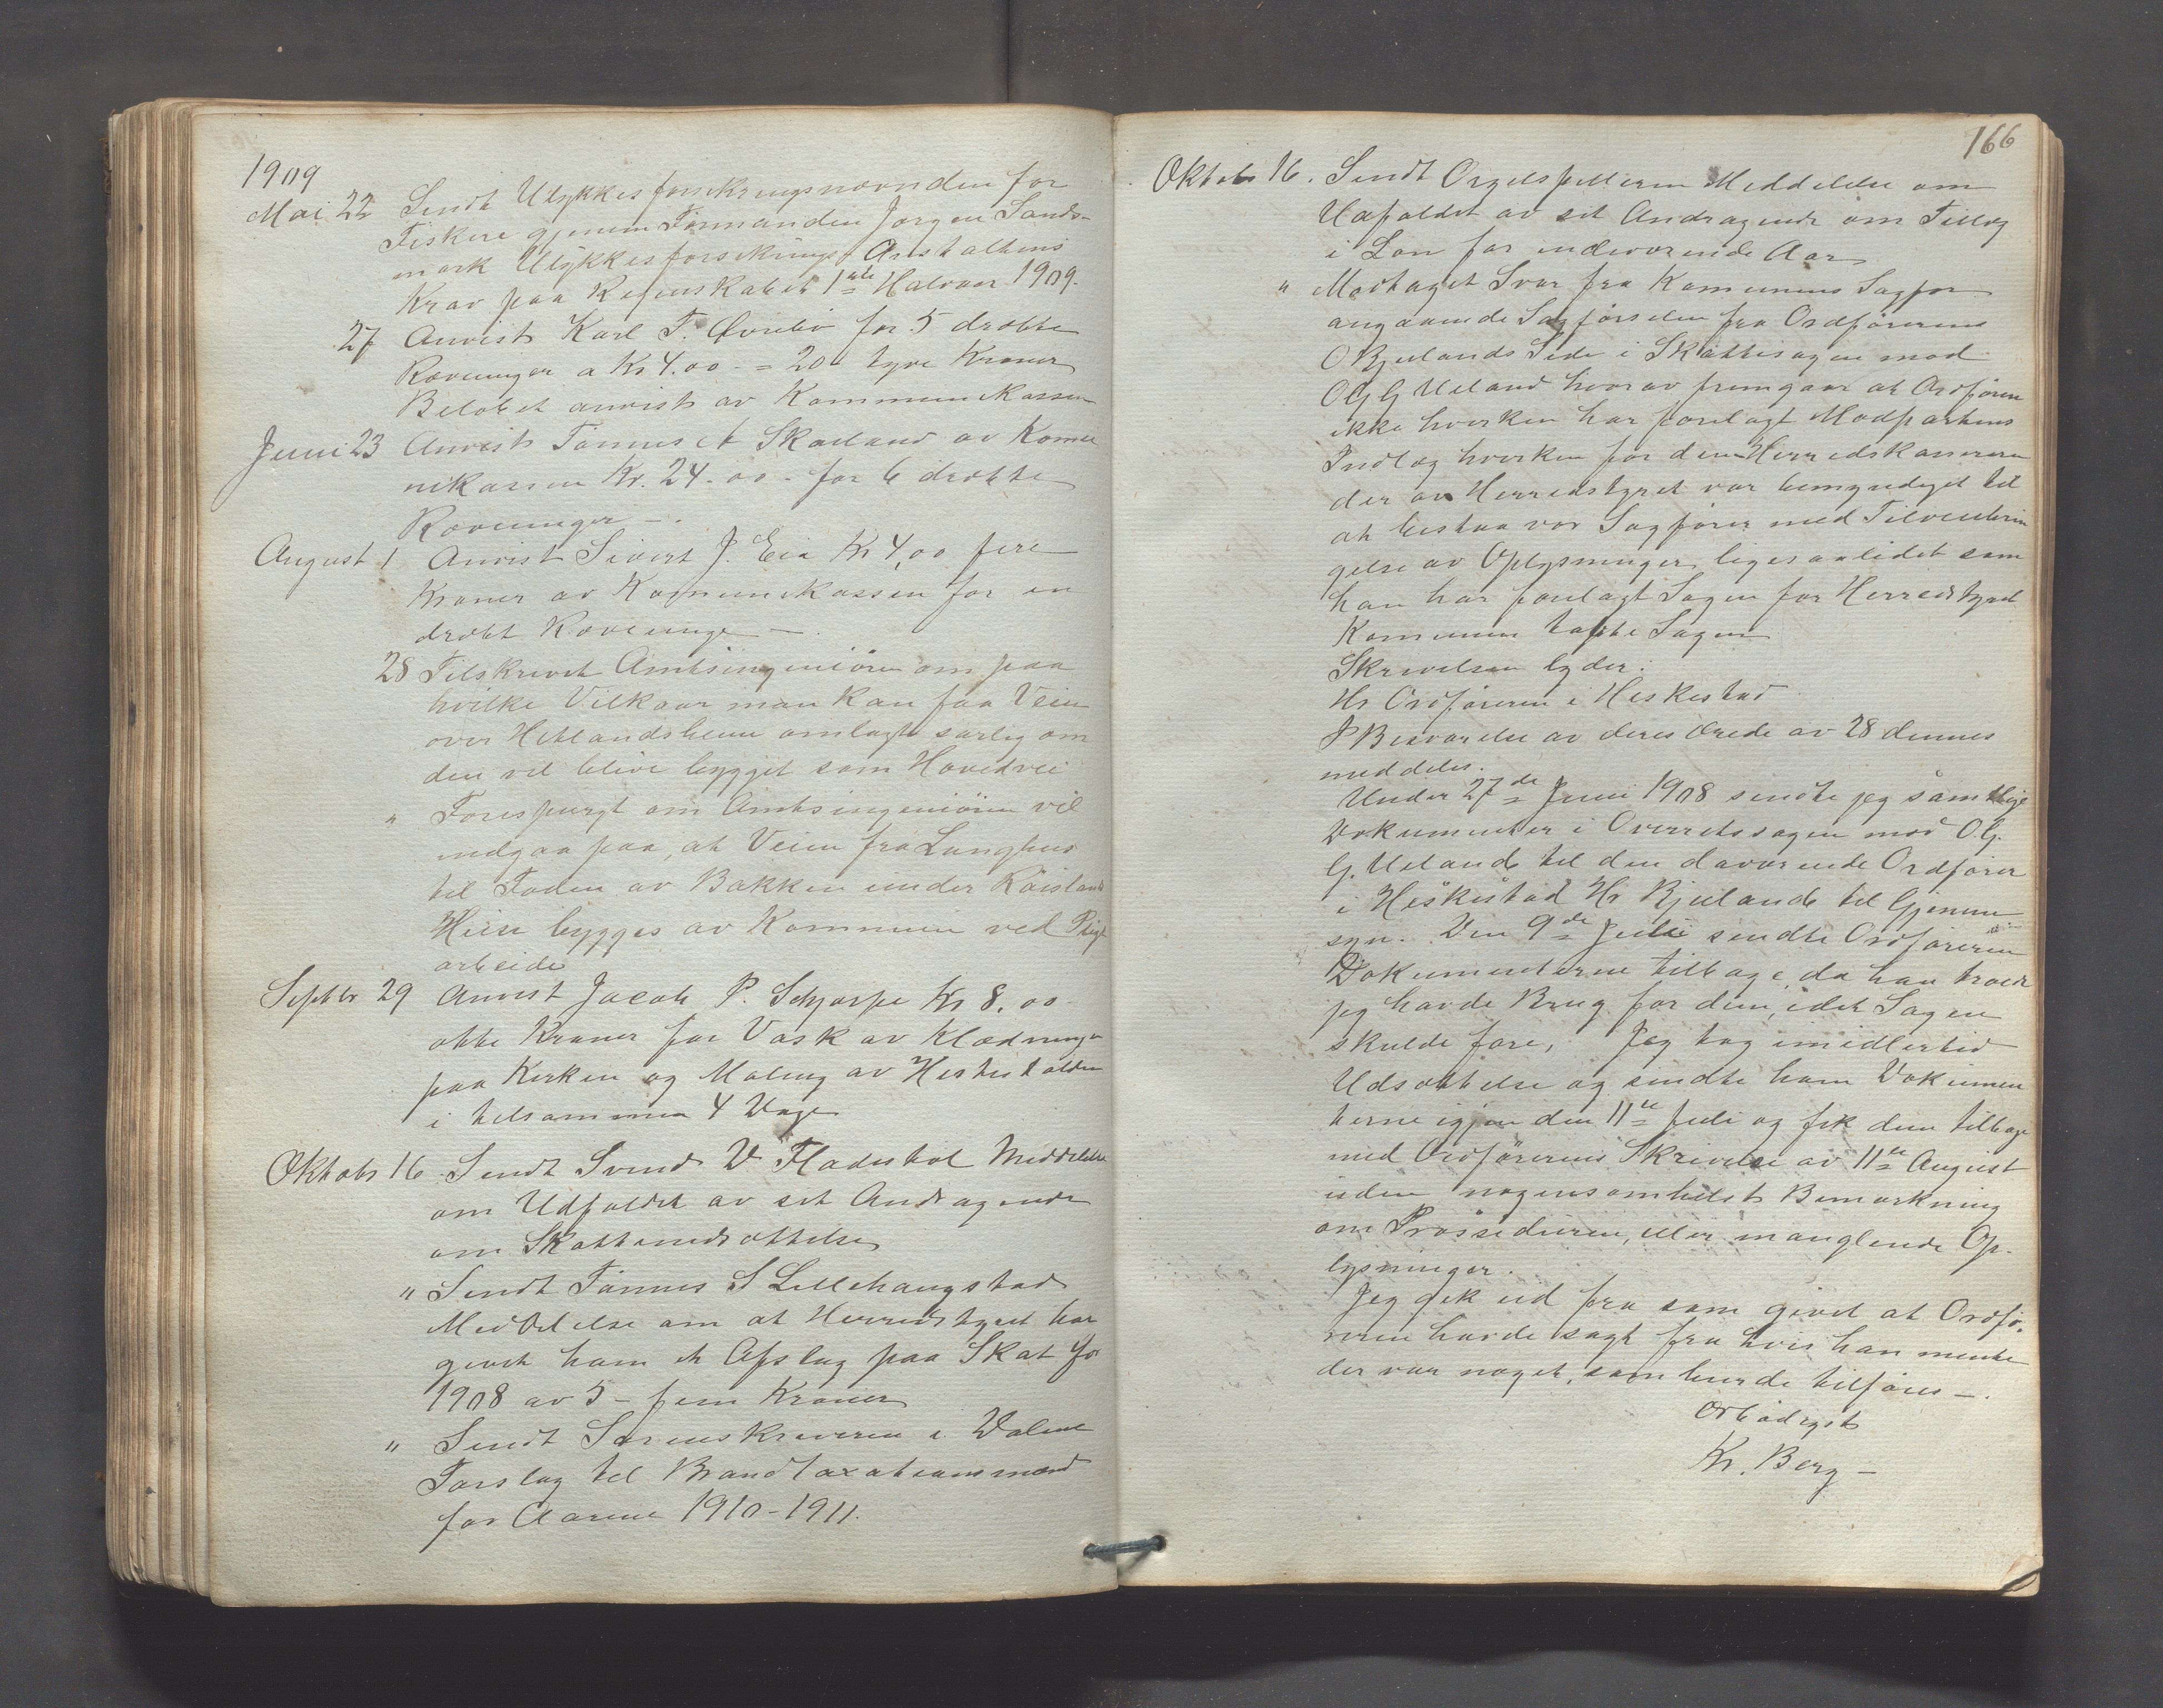 1909
Mai 22 Sendt Ulykkesforsikringsnævnden for
Fiskere gjennem Formanden Jørgen Sands-
mark Ulykkesforsikrings Anstaltens
Krav paa Regnskabet 1ste Halvaar 1909.
27 Anvist Karl T. Øvrebø for 5 dræbte
Ræveunger a Kr 4.00 - = 20 - tyve Kroner
Beløbet anvist av Kommunekassen
Juni 23 Anvist Tønnes A Skaaland av Komu
nekassen Kr. 24.00 - for 6 dræbte
Ræveunger -.
August 1 Anvist Sivert J. Eia Kr 4,00 fire
Kroner av Kommunekassen for en
dræbt Ræveunge -.
28 Tilskrevet Amtsingeniøren om paa
hvilke Vilkaar man kan faa Veien
over Hetlandsheien omlagt særlig om
den vil blive bygget som Hovedvei
" Forespurgt om Amtsingeniøren vil
indgaa paa, at Veien fra Langhus
til Foden av Bakken under Røisland
Heien bygges av Kommunen ved Pligt
arbeide
Septbr 29 Anvist Jacob P. Schjørpe Kr 8.00
otte Kroner for Vask av Klædningen
paa Kirken og Maling av Hestestalden
i tilsammen 4 Dage
Oktobr 16 Sendt Svend D Fladestøl Meddelelse
om Udfaldet av set Andragende
om Skattenedsættelse
" Sendt Tønnes S Lillehaugstad
Meddelelse om at Herredstyret har
givet ham et Afslag paa Skat for
1908 av 5 - fem Kroner
" Sendt Sorenskriveren i Dalene
Forslag til Brandtaxationsmænd
for Aarene 1910-1911.
166
Oktobr 16. Sendt Orgelspilleren Meddelelse om
Udfaldet av sit Andragende om Tillæg
i Løn for indeværende Aar
" Modtaget Svar fra Komunens Sagfør
angaaende Sagførselen fra Ordførerens
O Bjulands Side i Skattesagen mod
O G G Ueland hvorav fremgaar at Ordføren
ikke hverken har forelagt Modpartens
Indlæg hverken for den Herredskasserer
der av Herredstyret var bemyndiget til
at bistaa vor Sagfører med Tilveiebrin
gelse av Oplysninger ligesaalidet som
han har forelagt Sagen for Herredstyret
Komunen tapte Sagen
Skrivelsen lyder:
Hr Ordføreren i Heskestad
I Besvarelse av deres ærede av 28 dennes
meddeles.
Under 27de Juni 1908 sendte jeg samtlige
Dokumenter i Overretssagen mod O.G.
G. Ueland til den daværende Ordfører
i Heskestad Hr Bjuland til Gjennem
syn. Den 9de Juli sendte Ordføreren
Dokumenterne tilbage, da han troede
jeg havde Brug for dem, idet Sagen
skulde fore, Jeg tog imidlertid
Udsættelse og sendte ham Dokumen
terne igjen den 11te Juli og fik dem tilbage
med Ordførerens Skrivelse av 11te August
uden nogensomhelst Bemærkning
om Prossedyren, eller manglende Op-
lysninger.
Jeg gik ud fra som givet at Ordfø-
reren havde sagt fra hvis han mente
der var noget, som burde tilføies -.
Ærbødigst
Kr. Berg -